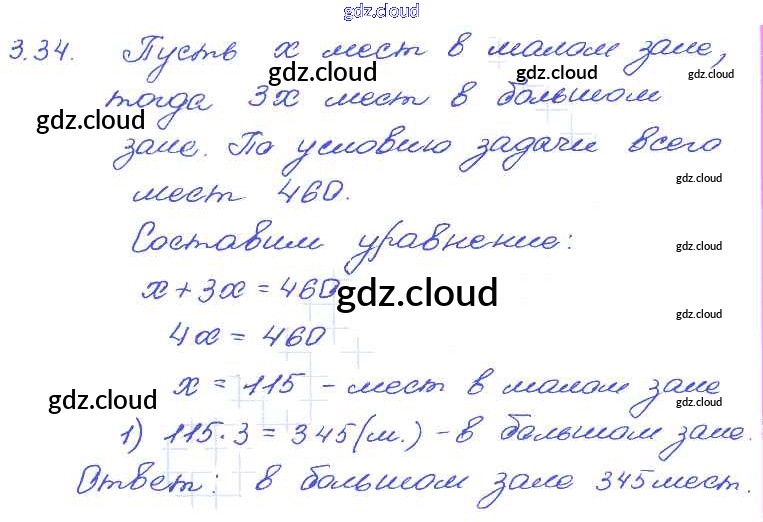 gdz.cloud
3.34. Пусть x мест в малом зале,
gdz.cloud gdz.cloud gdz.cloud
тогда 3x мест в большом
gdz.cloud
зале. По условию задачи всего
gdz.cloud
мест 460.
Составим уравнение:
gdz.cloud
x + 3x = 460
gdz.cloud
gdz.cloud
4x = 460
x = 115 - мест в малом зале
gdz.cloud gdz.cloud
1) 115·3 = 345(м.) - в большом зале.
Ответ: в большом зале 345 мест.
gdz.cloud gdz.cloud gdz.cloud